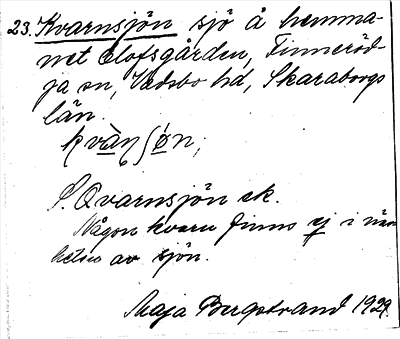 23. Kvarnsjön sjö å hemma-
net Elofsgården, Finneröd-
ja sn, Vadsbo hd, Skaraborgs
län.
kvàṇʃö́n;
S. Qvarnsjön ek.
Någon kvarn finns ej i när-
heten av sjön.
Maja Bergstrand 1929.